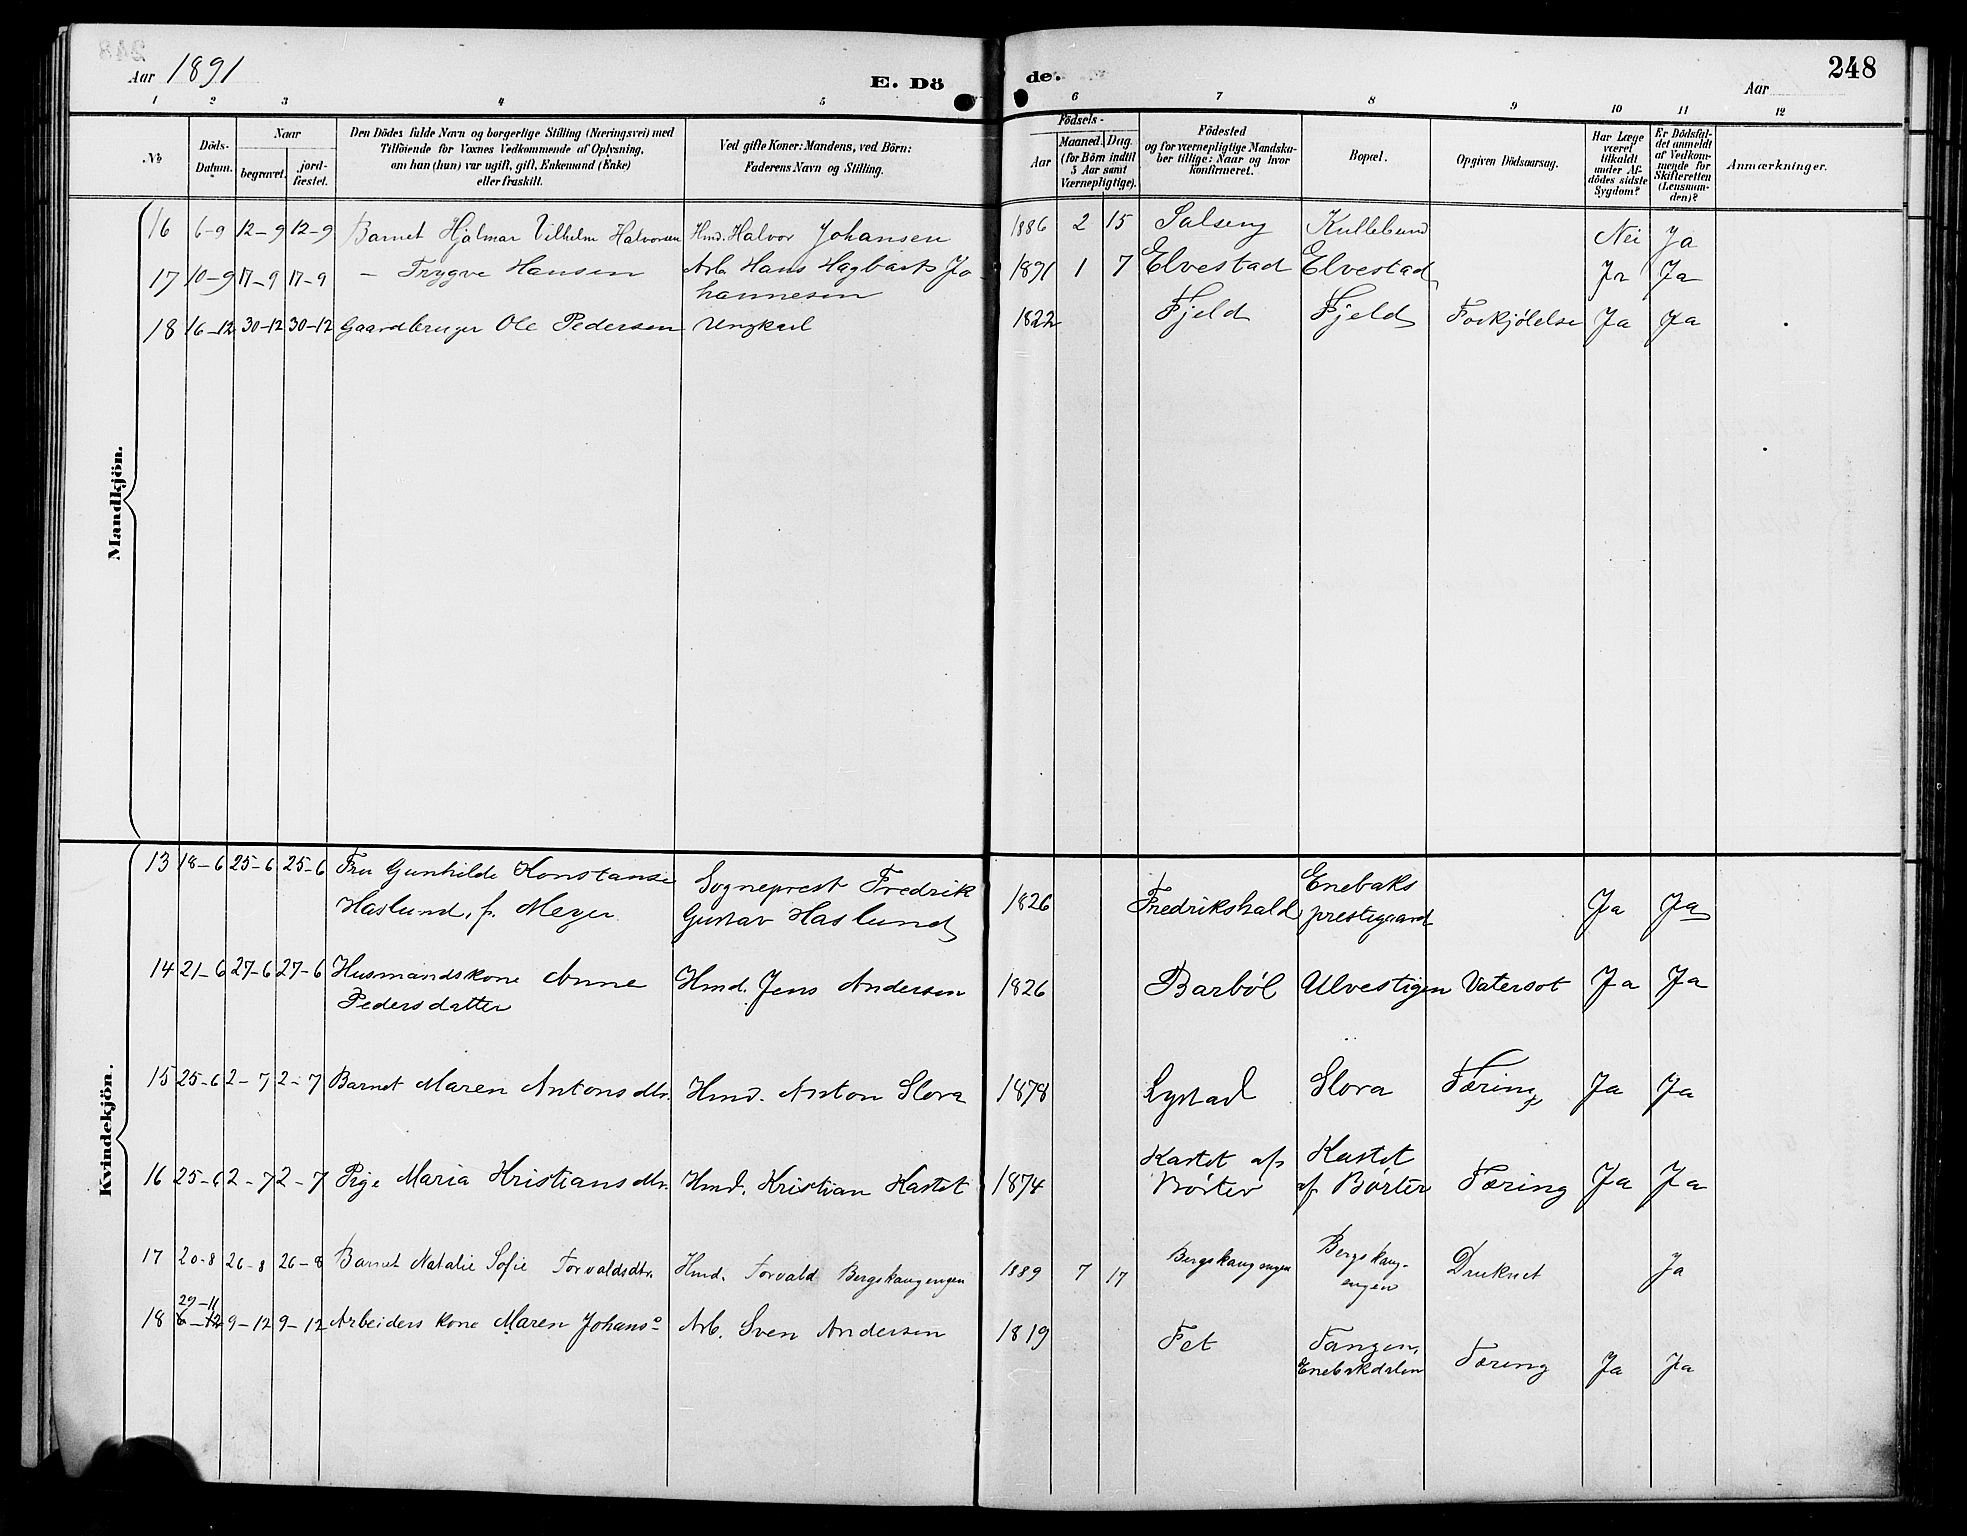 Aar 1891 E. Dö
de. Aar 248
1 2 3 4 5 6 7 8 9 10 11 12
No Döds-Datum. Naar begravet. jordfæstet.
Den Dödes fulde Navn og borgerlige Stilling (Næringsvei) med
Tilföiende for Voxnes Vedkommende af Oplysning,
om han (hun) var ugift, gift, Enkemand (Enke)
eller fraskilt.
Ved gifte Koner: Mandens, ved Börn:
Faderens Navn og Stilling.
Födsels-
Aar Maaned. Dag.
(for Börn indtil
5 Aar samt
Værnepligtige).
Födested
og for værnepligtige Mandska-
ber tillige: Naar og hvor
konfirmeret.
Bopæl.
Opgiven Dödsaarsag.
Har Læge
været
tilkaldt
under Af-
dödes sidste
Sygdom?
Er Dödsfal-
det anmeldt
af Vedkom-
mende for
Skifteretten
(Lensman-
den)?
Anmærkninger.
Mandkjön.
16 6-9 12-9 12-9 Barnet Hjalmar Vilhelm Halvorsen Hmd. Halvor Johansen 1886 2 15 Kullebund Nei Ja
17 10-9 17-9 17-9 - Trygve Hansen Arb. Hans Hagbart Jo- 1891 1 7 Elvestad Elvestad Ja Ja
hannesen
18 16-12 30-12 30-12 Gaardbruger Ole Pedersen Ungkarl 1822 Fjeld Fjeld Forkjölelse Ja Ja
Kvindekjön.
13 18-6 25-6 25-6 Fru Gunhilde Konstanse Sogneprest Fredrik 1826 Fredrikshald Enebaks Ja Ja
Haslund, f. Meyer Gustav Haslund prestegaard
14 21-6 27-6 27-6 Husmandskone Anne Hmd. Jens Andersen 1826 Barböl Ulvestigen Vatersot Ja Ja
Pedersdatter
15 25-6 2-7 2-7 Barnet Maren Antonsdtr. Hmd. Anton Slora 1878 Lystad Slora Tæring Ja Ja
16 25-6 2-7 2-7 Pige Maria Kristiansdtr. Hmd. Kristian Kastet 1874 Kastet af Kastet Tæring Ja Ja
Börter af Börter
17 20-8 26-8 26-8 Barnet Natalie Sofie Torvaldsdtr. Hmd. Torvald Bergskaugengen 1889 7 17 Bergskaugengen Bergskaug- Druknet Ja
engen
29-11
18 6-12 9-12 9-12 Arbeiders kone Maren Johansd Arb. Sven Andersen 1819 Fet Tangen, Tæring Ja Ja
Enebakdalen